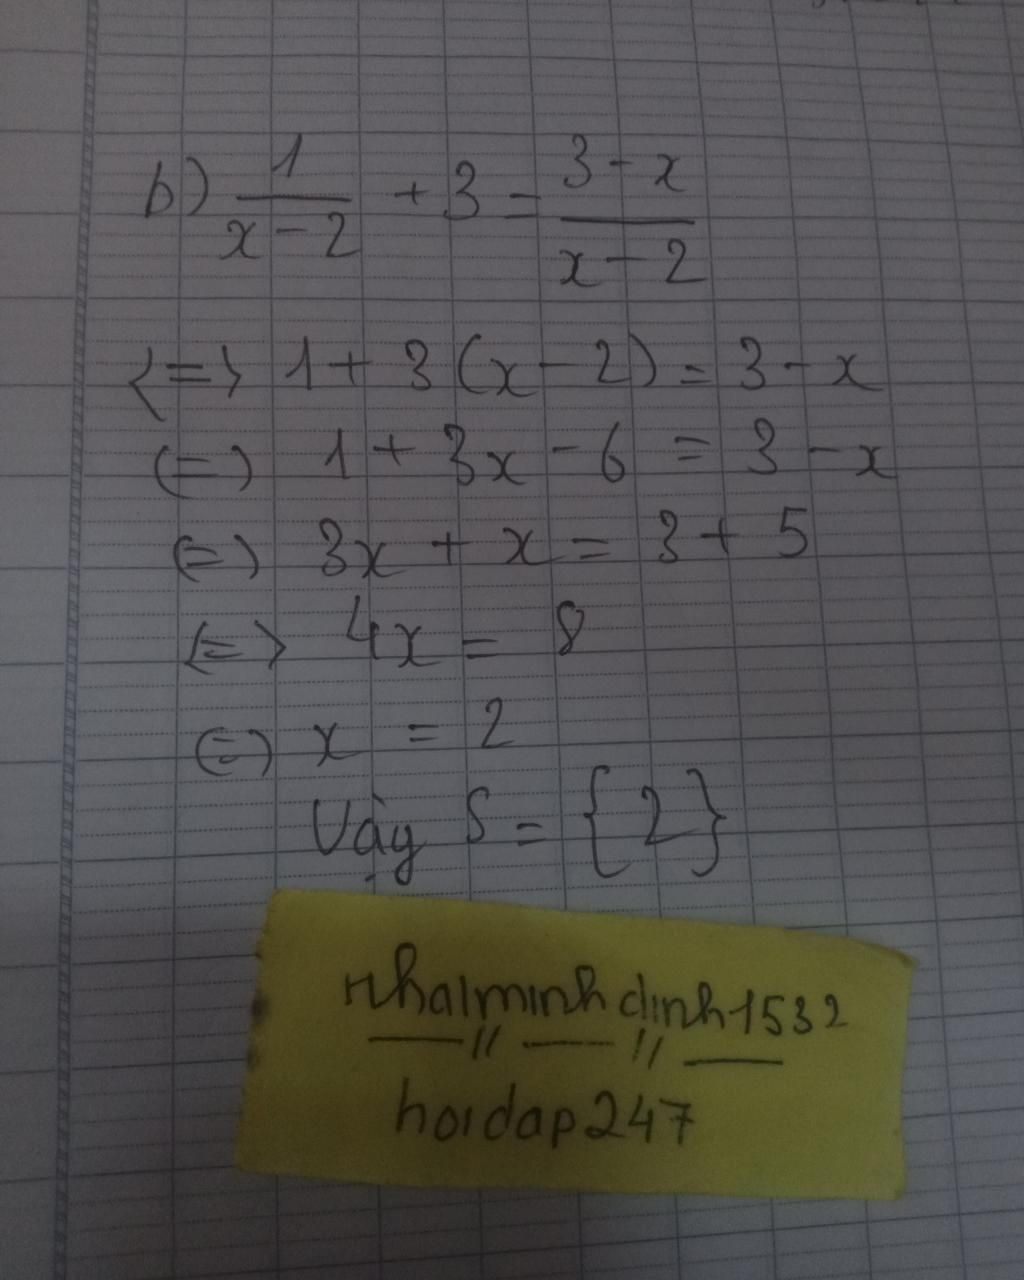 b) 1/(x-2) + 3 = (3-x)/(x-2)
<=> 1 + 3(x-2) = 3-x
(=) 1 + 3x - 6 = 3-x
(=) 3x + x = 3 + 5
<=> 4x = 8
(=) x = 2
Vậy S = {2}
nhalminhdinh1532
hoidap247